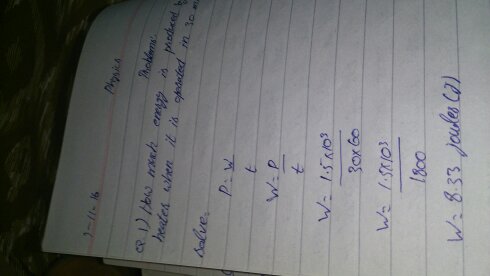 Physics
2-11-16
Problems:
Q.1) How much energy is produced
heater when it is operated in 30
Solve:
P = W
t
W = P
t
W = 1.5x10³
30x60
W = 1.5x10³
1800
W = 8.33 joules (J)